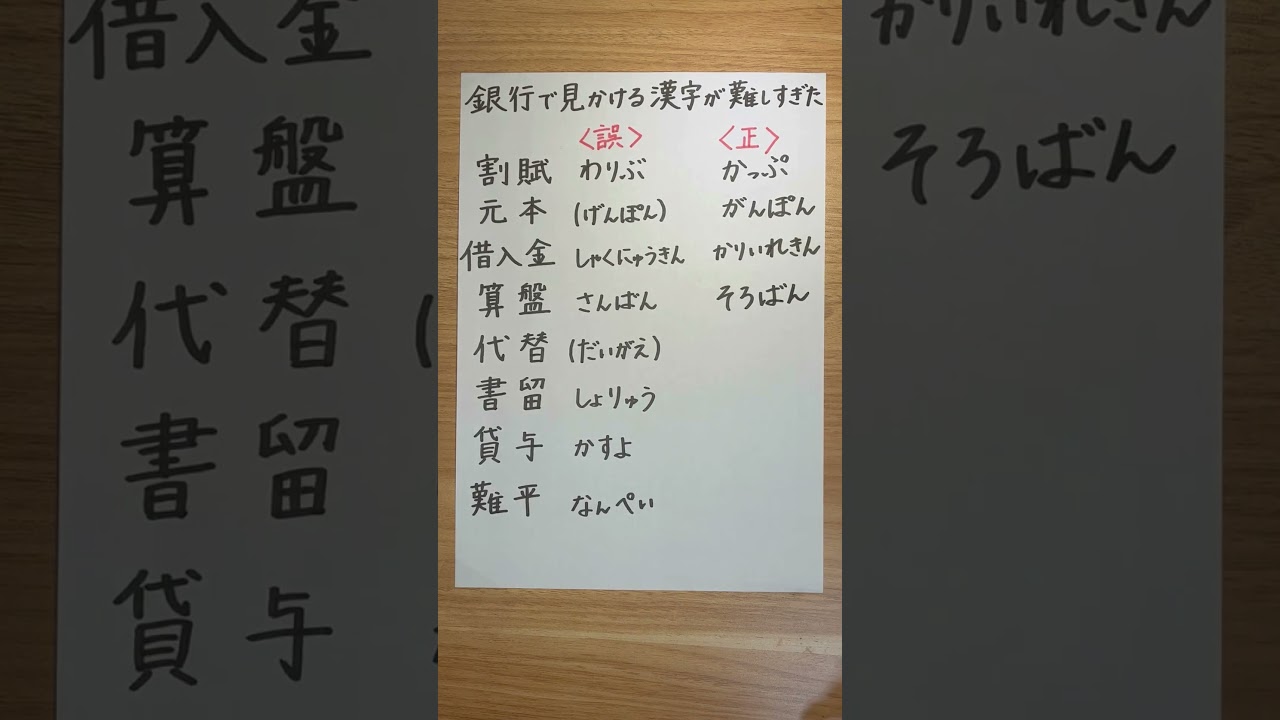 銀行で見かける漢字が難しすぎた
〈誤〉 〈正〉
割賦 わりぶ かっぷ
元本 (げんぽん) がんぽん
借入金 しゃくにゅうきん かりいれきん
算盤 さんばん そろばん
代替 (だいがえ)
書留 しょりゅう
貸与 かすよ
難平 なんぺい
借入金
算盤
代替 (
書留
貸与
かりいれきん
そろばん